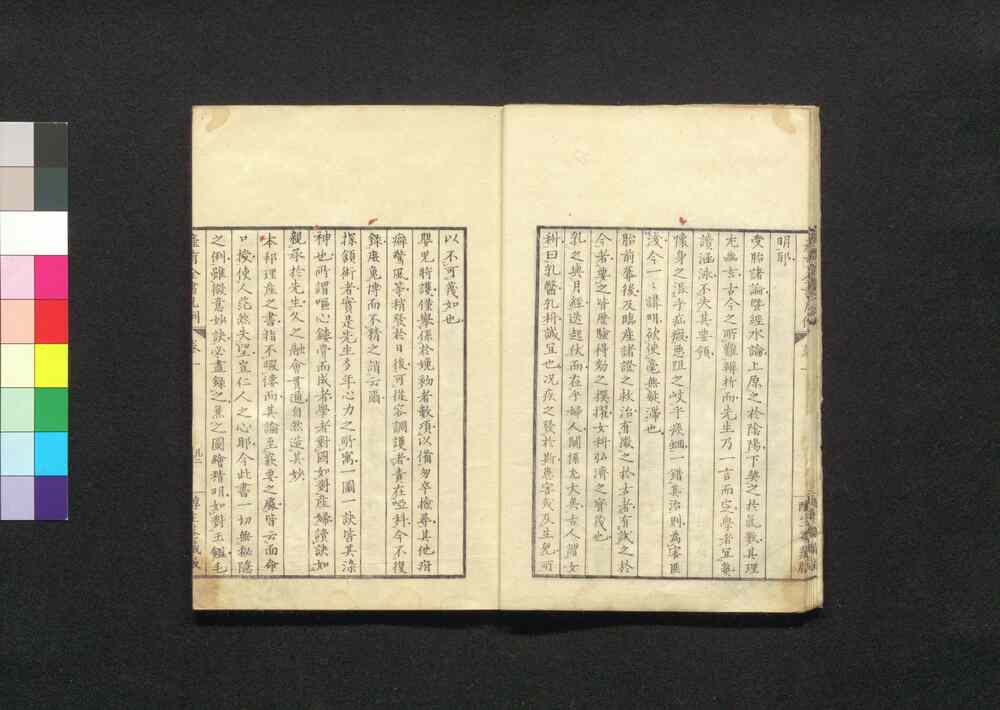 明耶
受胎諸論暨經水論上原之於陰陽下契之於氣數其理
尤幽玄古今之所難辨析而先生乃一言而定學者宜熟
讀涵泳不失其要領
傷身之混乎疝癥惡阻之岐乎疾一錯其治則為害匪
淺今一一講明欲使毫無疑滯也
胎前華後及臨産諸證之救治有徵之於古者有試之於
今者要之皆歷驗得効之撰擢女科弘濟之寶筏也
乳之與月經迭起伏而在乎婦人關係尤大矣古人謂女
科曰乳醫乳科誠宜也况疾之發於斯患害或及生兒所
以不可蔑如也
嬰兒將護僅舉係於娩初者數項以備匆卒撿尋其他疳
癖驚風等稍發於日後可從容調護者責在啞科今不復
錄庶免博而不精之謂云爾
探頷術者實是先生多年心力之所寓一圖一訣皆其滌
神也所謂嘔心鏤骨而成者學者對圖如對産婦讀訣如
親承於先生久之融會貫通自然造其妙
本邦理産之書指不暇僂而其論至嶔要之處皆云面命
口授使人茫然失望豈仁人之心耶今此書一切無秘隱
之例雖微意妙訣必盡錄之兼之圖繪精明如對玉鑑毛